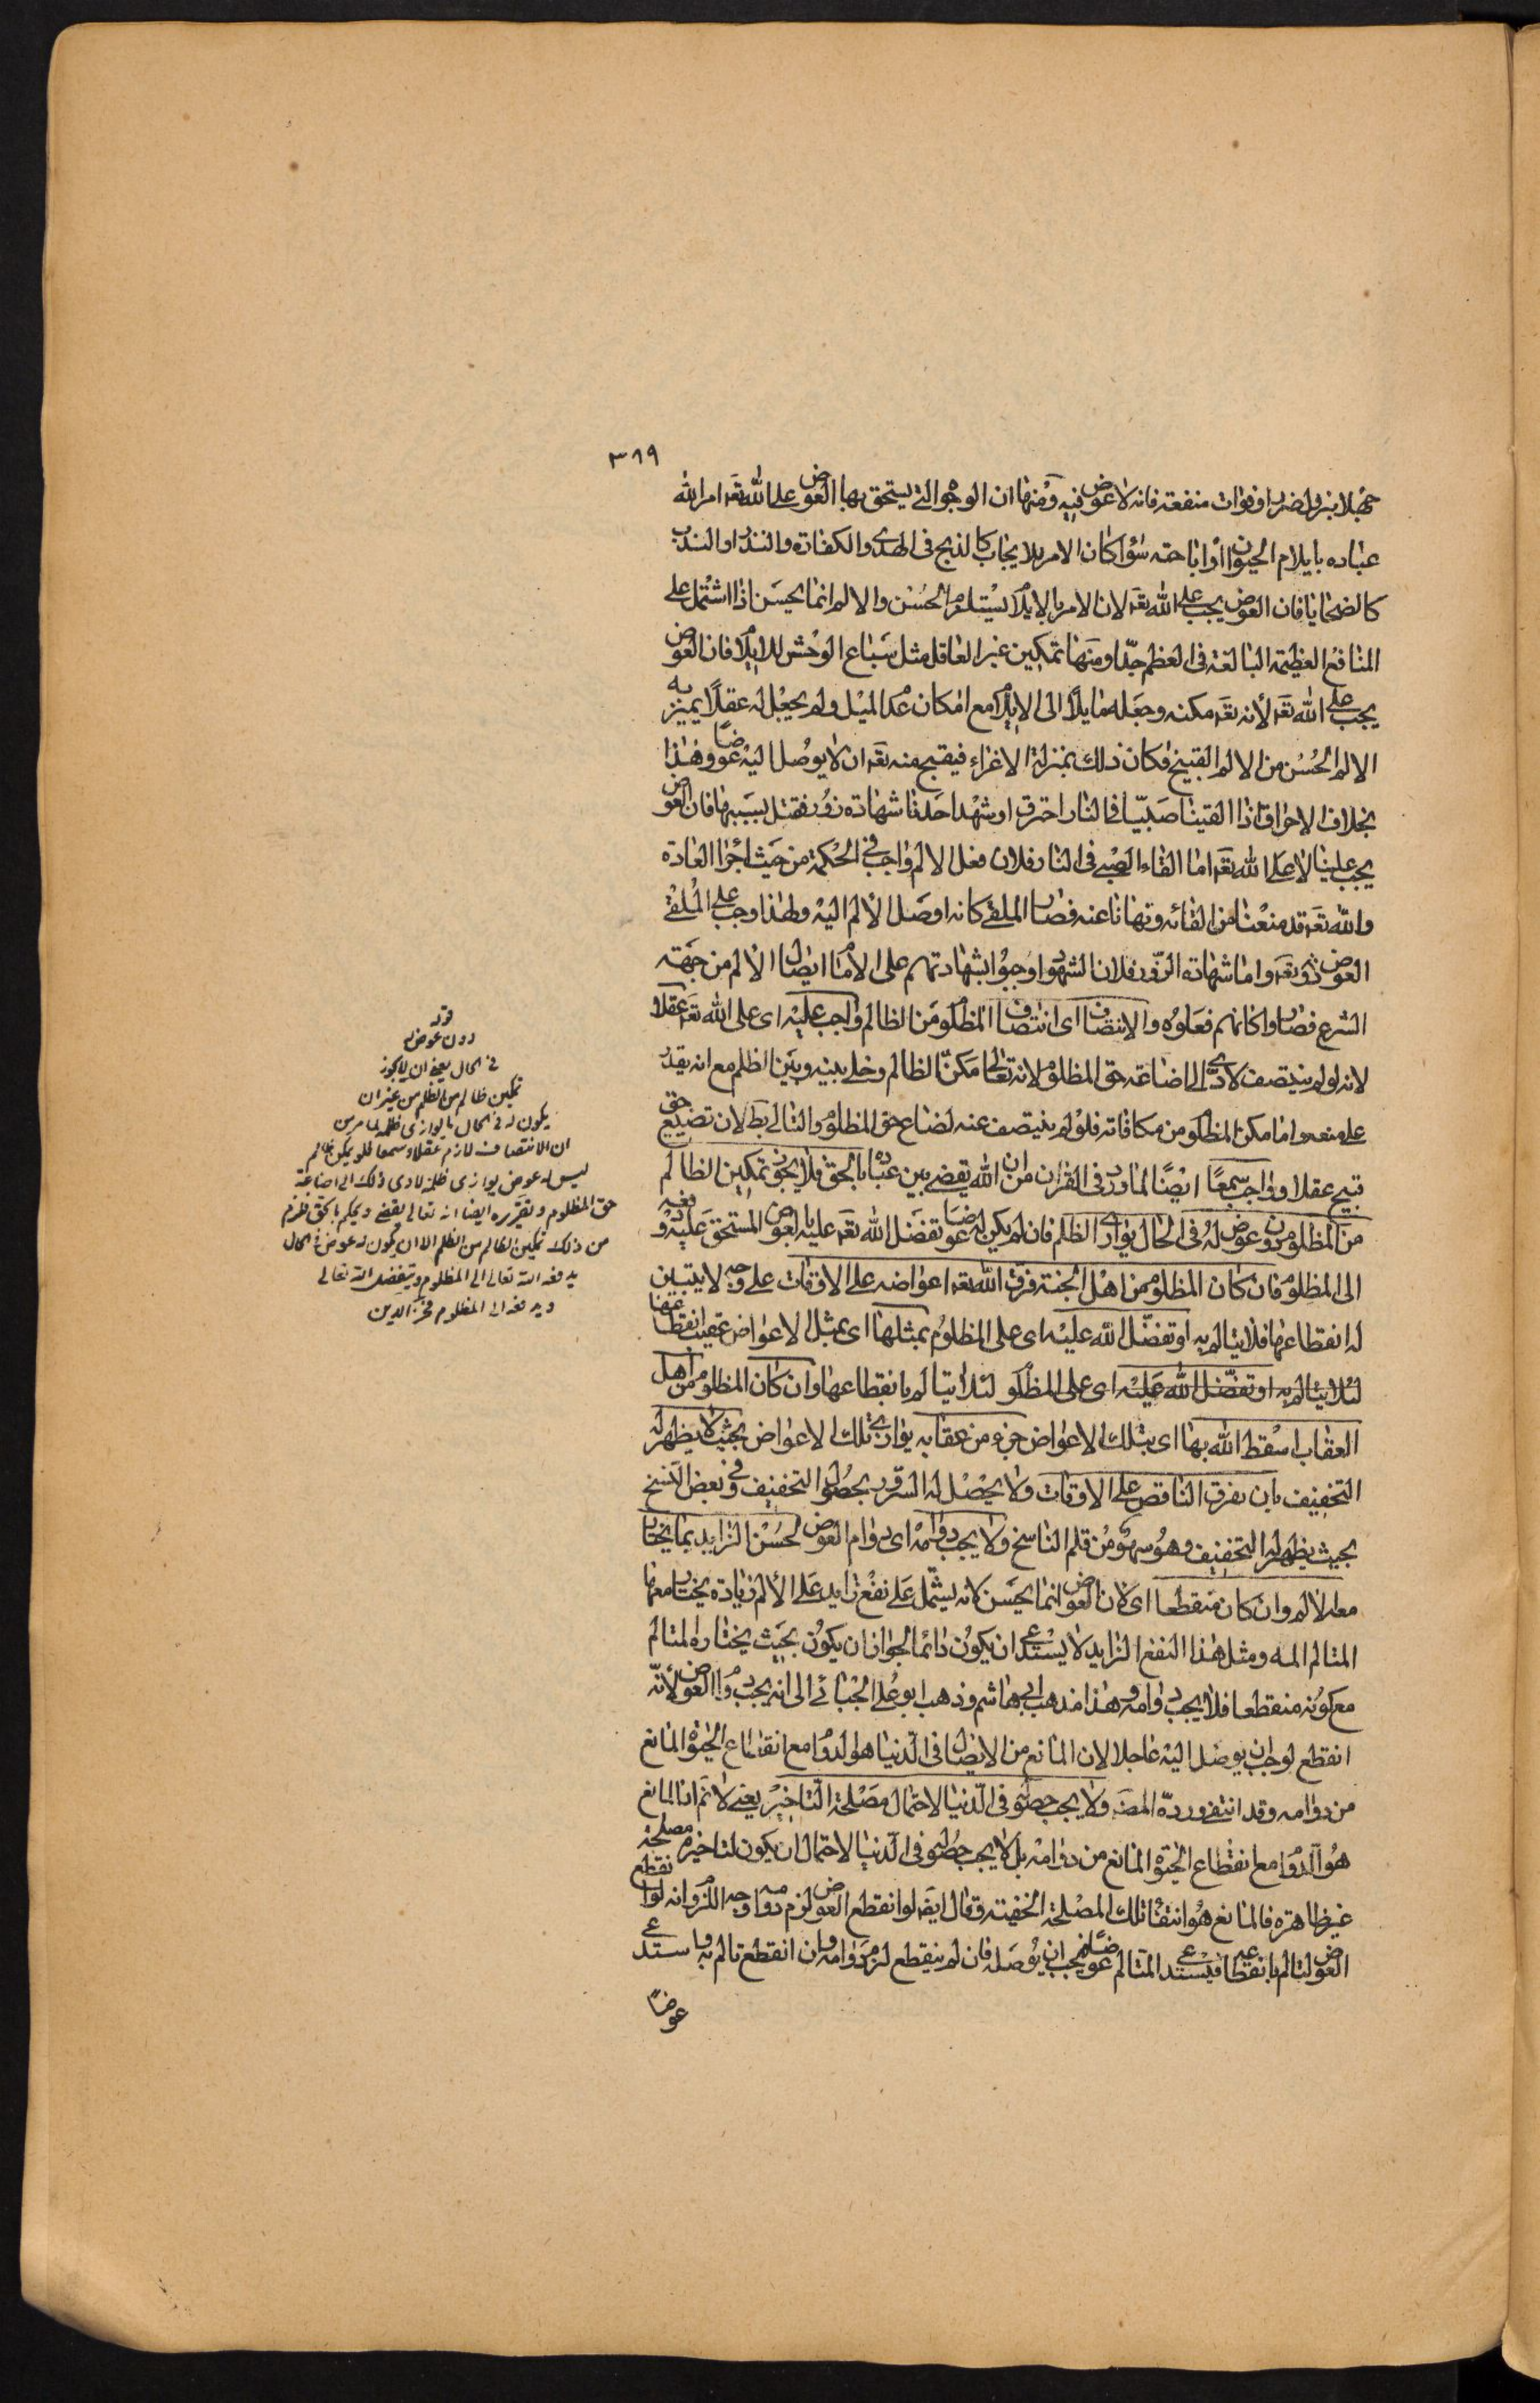 ٣١٩
جهلا بنزول ضرر او فوات منفعة فانه لا عوض فيه ومنها ان الوجوه التى يستحق بها العوض على الله تعه امر الله
عباده بايلام الحيوان او اباحته سواء كان الامر بلايجاب كالذبح فى الهدى والكفارة والنذر او الندب
كالضحايا فان العوض يجب على الله تعه لان الامر بالايلام يستلزم الحسن والالم انما يحسن اذا اشتمل على
المنافع العظيمة البالغة فى العظم جدّا ومنها تمكين غير العاقل مثل سباع الوحش للايلام فان العوض
يجب على الله تعه لأنه تعه مكنه وجعله مايلاً الى الايلام مع امكان عدم الميل ولم يجعل له عقلاً يميز به
الالم الحسن من الالم القبيح فكان ذلك بمنزلة الاغراء فيقبح منه تعه ان لا يوصل اليه عوضًا وهذا
بخلاف الاحراق اذا القينا صبيّا فى النار احترق او شهد احدنا شهادة زور فقتل بسببها فان العوض
يجب علينا لا على الله تعه اما القاء الصبى فى النار فلان فعل الالم واجب فى الحكمة من حيث اجرا العادة
والله تعه قد منعنا من القائه ونهانا عنه فصار الملقى كانه اوصل الألم اليه ولهذا وجب على الملقى
العوض دونه تعه واما شهادة الزّور فلان الشهود اوجبوا بشهادتهم على الامام ايصال الألم من جهة
الشرع فصاروا كانهم فعلوه والانتصاف اى انتصاف المظلوم من الظالم واجب عليه اى على الله تعه عقلا
لانه لو لم ينتصف لادّى الى اضاعة حق المظلوم لانه تعالى مكّن الظالم وخلى بينه وبين الظلم مع انه يقدر
على منعه وما مكن المظلوم من مكافاته فلو لم ينتصف عنه لضاع حق المظلوم والتالى بط لان تضييع حق
قبيح عقلا وواجب سمعًا ايضًا لما ورد فى القرآن من ان الله يقضى بين عباده بالحق فلا يجوز تمكين الظالم
من المظلوم من دون عوض له فى الحال يوازى الظلم فان لم يكن له عوضًا تفضل الله تعه عليه بالعوض المستحق عليه ودفعه
الى المظلوم فان كان المظلوم من اهل الجنة فرق الله تعه اعواضه على الاوقات على وجه لا يتبين
له انقطاعها فلا يتالم به او تفضّل الله عليه اى على المظلوم بمثلها اى بمثل الاعواض عقيب انقطاعها
لئلا يتالم به او تفضّل الله عليه اى على المظلوم لئلا يتالم بانقطاعها وان كان المظلوم من اهل
العقاب اسقط الله بها اى بتلك الاعواض جزء من عقابه يوازى تلك الاعواض بحيث لا يظهر له
التخفيف بان يفرق الناقص على الاوقات ولا يحصل له السرور بحصول التخفيف وفى بعض النسخ
بحيث يظهر له التخفيف وهو سهو من قلم الناسخ ولا يجب دوامه اى دوام العوض لحسن الزايد بما يختار
معه الالم وان كان منقطعا اى لان العوض انما يحسن لانه يشتمل على نفع زايد على الألم زيادة يختار معها
المتالم المه ومثل هذا النفع الزايد لا يستدعى ان يكون دائما لجواز ان يكون بحيث يختاره المتالم
مع كونه منقطعا فلا يجب دوامه وهذا مذهب ابى هاشم وذهب ابو على الجبائى الى انه يجب دوام العوض لأنّه
انقطع لوجب ان يوصل اليه عاجلا لان المانع من الايصال فى الدنيا هو الدوام مع انقطاع الحيوة المانع
من دوامه وقد انتفى وردّه المصه ولا يجب حصوله فى الدنيا لاحتمال مصلحة التاخير يعنى لا نم ان المانع
هو الدوام مع انقطاع الحيوة المانع من دوامه بل لا يجب حصوله فى الدنيا لاحتمال ان يكون لتاخيره مصلحة
غير ظاهرة فالمانع هو انتفاء تلك المصلحة الخفية وقال ايضه لو انقطع العوض لزم دوامه وجه اللزوم انه لو انقطع
العوض لتالم بانقطاعه فيستدعى المتالم عوضًا فيجب ان يوصله فان لم ينقطع لزم دوامه وان انقطع تالم به واستدعى
عوضًا
قوله
دون عوض
فى الحال يعنى ان لا يجوز
تمكين ظالم من الظلم من غير ان
يكون له فى الحال ما يوازى ظلمه لما مر من
ان الانتصاف لازم عقلا وسمعا فلو يمكن ظالم
ليس له عوض يوازى ظلمه لادى ذلك الى اضاعة
حق المظلوم وتقريره ايضا انه تعالى يقضى ويحكم بالحق فلزم
من ذلك تمكين الظالم من الظلم الا ان يكون له عوض فى الحال
يدفعه الله تعالى الى المظلوم ويتفضل الله تعالى
ويدفعه الى المظلوم فخر الدين